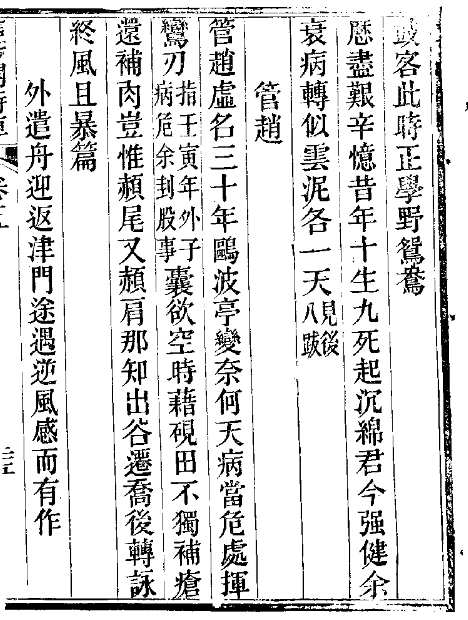 客此時正學野鴛鴦
歷盡艱辛憶昔年十生九死起沉綿君今强健余
衰病轉似雲泥各一天見後八跋
管趙
管趙虛名三十年鷗波亭變奈何天病當危處揮
鸞刃指壬寅年外子病危余刲股事囊欲空時藉硯田不獨補瘡
還補肉豈惟頳尾又頳肩那知出谷遷喬後轉詠
終風且暴篇
外遣舟迎返津門途遇逆風感而有作